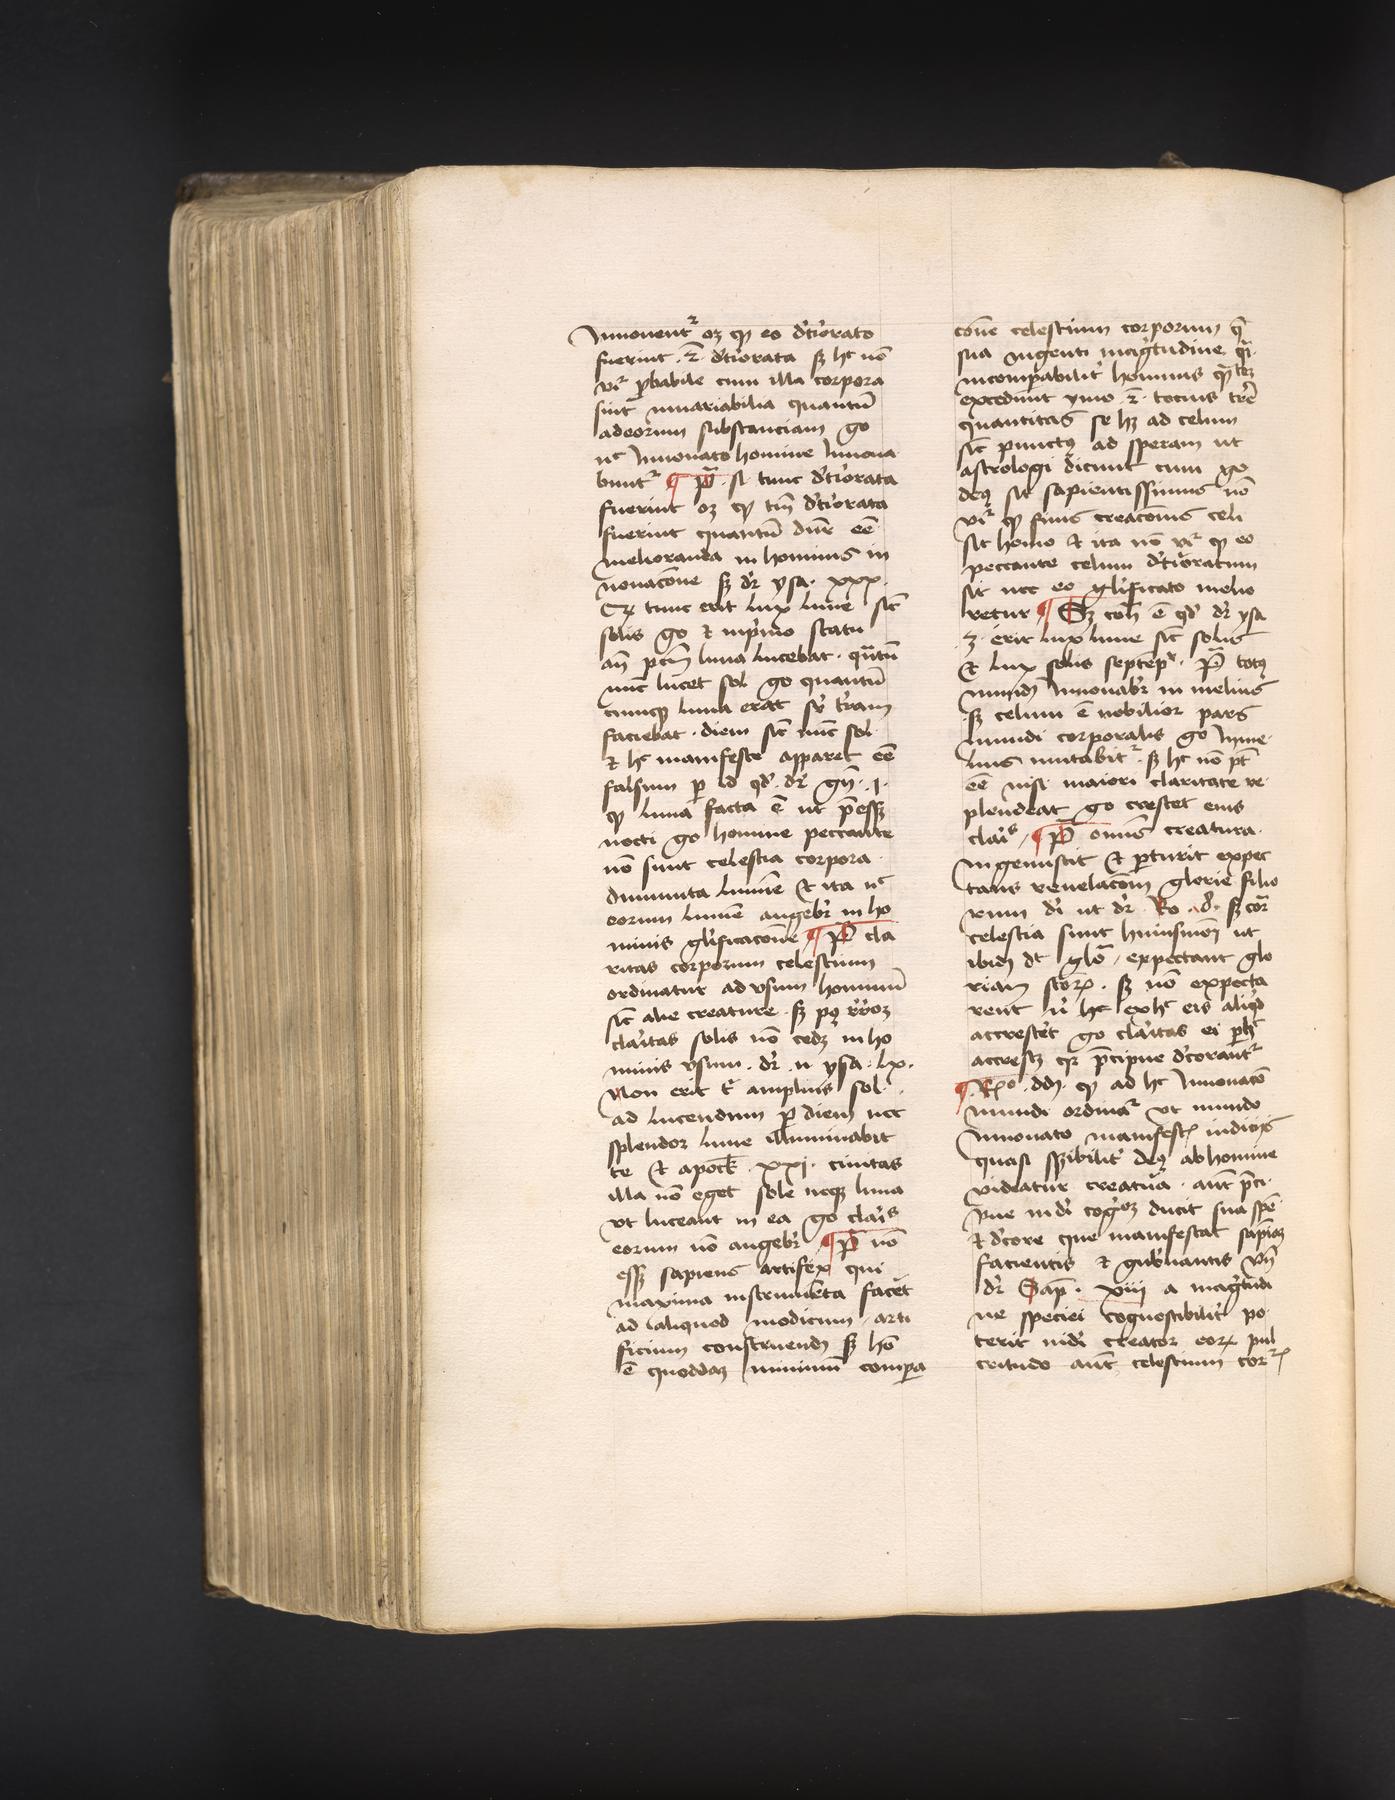 Innouent᷑ oꝫ qꝫ eo dͤtiorato
fuerint · ⁊̄ · dͤtiorata sꝫ hͨ nō
vr̄ ꝓbabile cum illa corpora
sint inuariabilia quantū
ad eorum substanciam gͦ
nͨ Innouato homine Innoua
bunt᷑ ¶ P̄ · si tunc dͤtiorata
fuerint oꝫ qꝫ tm̄ dͤtiorata
fuerint quantū dn̄r eē
melioranda in hominis in
nouacōne sꝫ dr̄ ysa · xxx ·
Qꝫ tunc erit lux lune sic̄
solis gͦ et in pͥmo statu
an̄ pctm̄ luna lucebat · qntū
nūc lucet sol gͦ quantū
cumqꝫ luna erat suꝑ terram
faciebat · diem sic̄ nūc sol
et hͨ manifeste apparet eē
falsum ꝑ id qd̄ · dr̄ gn̄ · j ·
qꝫ luna facta ē ut p̄eēt
nocti gͦ homine peccante
nō sunt celestia corpora
diminuta lumīe et ita nͨ
eorum lumē augebr̄ in ho
minis glificacōne ¶ P̄ cla
ritas corporum celestium
ordinatur ad vsum hominū
sic̄ alie creature · sꝫ pꝰ rr̄oꝫ
claritas solis nō cedꝫ in ho
minis vsum · dr̄ · n · ysa · lx ·
Non erit tͥ amplius sol
ad lucendum ꝑ diem nec
splendor lune illuminabit
te et apoc̄ · xxj · ciuitas
illa nō eget sole neqꝫ luna
vt luceant in ea gͦ claͥs
eorum nō augebr̄ ¶ P̄ nō
eēt sapiens artifex qui
maxima instrumēta facēt
ad aliquod modicum arti
ficium construendū sꝫ hō
ē quoddaꝫ minimū compa
cōne celestium corporum q̄
sua ingenti magͥtudine qͣ
incomꝑabilit᷑ hominis qͣteꝫ
excedunt ymo · ⁊̄ · tocius tr̄e
quantitas se hꝫ ad celum
sic̄ punctꝰ ad speram ut
astrologi dicunt cum gͦ
deꝰ sit sapientissimus nō
vr̄ qꝫ finis creacōnis celi
sit homo et ita nō vr̄ qꝫ eo
peccante celum dͤtioratum
sit nec eo glͥficato melio
retur ¶ Sꝫ cōt̄ ē qd̄ dr̄ ysa
3 · erit lux lune sic̄ solis
et lux solis septēp᷑ · P̄ totꝰ
mundꝰ Innouabr̄ in melius
sꝫ celum ē nobilior pars
mundi corporalis gͦ In me
lius mutabit᷑ · sꝫ hͨ nō pt̄
eē nisi maiori claritate re
plendeat gͦ crescet eius
claͥs ¶ P̄ omnis creatura
ingemiscit et ꝑturit expec
tans reuelacōm glorie filio
rum di ut dr̄ Ro · 8 · sꝫ corͣ
celestia sunt huiusmōi ut
ibidꝫ dt̄ glōͣ expectant glo
riam sctōꝝ · sꝫ nō expecta
rent n̄ hͨ ex hͨ eis aliqͥd
accresceret gͦ claritas ei ꝑ hͨ
accrescꝫ qͥ p̄cipue dͤcorant᷑
¶ Rͦ · ddꝫ · qꝫ ad hͨ Innouacō
mundi ordinat᷑ vt mundo
Innouato manifestꝭ indicijs
quasi sꝫibilit᷑ deꝰ ab homine
videatur creatuͣ · aut̄ p̄ci
pue in dͥ cogͦeꝫ ducit sua spē
et dͤcore que manifestat sapiāꝫ
facientis et gubͥnantis vn̄
dr̄ Sap̄ · xiij a magͥtudi
ne speciei cognoscibilit᷑ po
terit uidͥ creator eorꝝ pul
critudo aut̄ celestium corꝝ